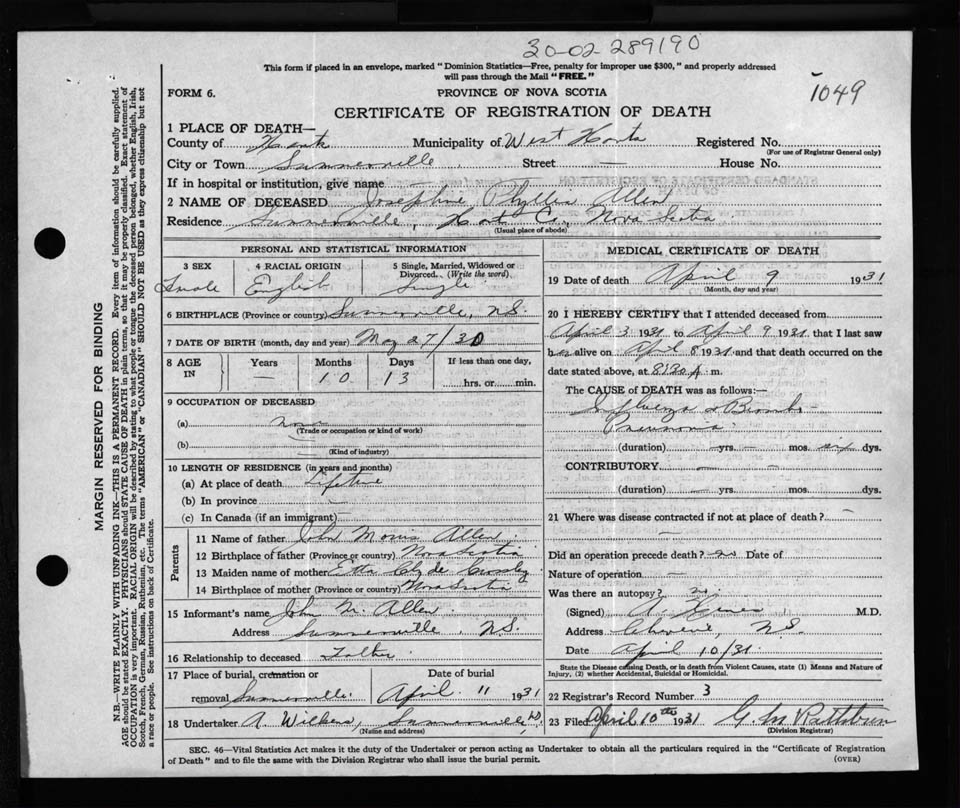 30-02-289190
This form if placed in an envelope, marked "Dominion Statistics—Free, penalty for improper use $300," and properly addressed
will pass through the Mail "FREE."
1049
FORM 6.
PROVINCE OF NOVA SCOTIA
CERTIFICATE OF REGISTRATION OF DEATH
1 PLACE OF DEATH—
County of Hants Municipality of West Hants Registered No.
(For use of Registrar General only)
City or Town Summerville Street — House No.
If in hospital or institution, give name —
2 NAME OF DECEASED Josephine Phyllis Allen
Residence Summerville, Hants Co., Nova Scotia
(Usual place of abode)
PERSONAL AND STATISTICAL INFORMATION
3 SEX
4 RACIAL ORIGIN
5 Single, Married, Widowed or
Divorced. (Write the word)
Female English Single
6 BIRTHPLACE (Province or country) Summerville, N.S.
7 DATE OF BIRTH (month, day and year) May 27/30
8 AGE IN
Years Months Days If less than one day,
— 10 13 hrs. or min.
9 OCCUPATION OF DECEASED
(a) none
(Trade or occupation or kind of work)
(b)
(Kind of industry)
10 LENGTH OF RESIDENCE (in years and months)
(a) At place of death Lifetime
(b) In province
(c) In Canada (if an immigrant) —
Parents
11 Name of father John Morris Allen
12 Birthplace of father (Province or country) Nova Scotia
13 Maiden name of mother Etta Clyde Crossley
14 Birthplace of mother (Province or country) Nova Scotia
15 Informant's name John M. Allen
Address Summerville, N.S.
16 Relationship to deceased Father
17 Place of burial, cremation or Date of burial
removal Summerville. April 11 1931
18 Undertaker A Wilkens, Summerville
(Name and address)
MEDICAL CERTIFICATE OF DEATH
19 Date of death April 9 1931
(Month, day and year)
20 I HEREBY CERTIFY that I attended deceased from
April 3 1931 to April 9 1931 that I last saw
her alive on April 8 1931 and that death occurred on the
date stated above, at 8:30 m.
The CAUSE of DEATH was as follows:—
Influenza & Broncho
Pneumonia
(duration) — yrs. — mos. six dys.
CONTRIBUTORY — —
(duration) — yrs. — mos. dys.
21 Where was disease contracted if not at place of death? —
Did an operation precede death? no Date of
Nature of operation —
Was there an autopsy? no
(Signed) M.D.
Address N.S.
Date April 10/31.
State the Disease causing Death, or in death from Violent Causes, state (1) Means and Nature of
Injury, (2) whether Accidental, Suicidal or Homicidal.
22 Registrar's Record Number 3
23 Filed April 10th 1931 G. M Rathbun
(Division Registrar)
SEC. 46—Vital Statistics Act makes it the duty of the Undertaker or person acting as Undertaker to obtain all the particulars required in the "Certificate of Registration
of Death" and to file the same with the Division Registrar who shall issue the burial permit.
(OVER)
MARGIN RESERVED FOR BINDING
N.B.—WRITE PLAINLY WITH UNFADING INK—THIS IS A PERMANENT RECORD. Every item of information should be carefully supplied.
AGE should be stated EXACTLY. PHYSICIANS should STATE CAUSE OF DEATH in plain terms, so that it may be properly classified. Exact statement of
OCCUPATION is very important. RACIAL ORIGIN will be described by stating to what people or tongue the deceased person belonged, whether English, Irish,
Scotch, French, German, Russian, Ruthenian, etc. The terms "AMERICAN" or "CANADIAN" SHOULD NOT BE USED as they express citizenship but not
a race or people. See instructions on back of Certificate.